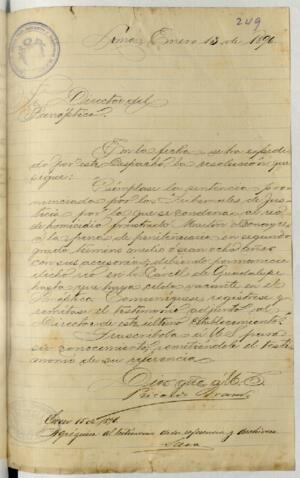 249
Lima, Enero 13 de 1890
Sr. Director del
Panóptico.
En la fecha se ha expedi
do por este Despacho la resolucion que
sigue:
"Cúmplase la sentencia pro
nunciada por los Tribunales de Jus
ticia por la que se condena al reo
de homicidio frustrado Martin
á la pena de penitenciaria en segundo
grado término medio ó sean ocho años
con sus accesorias; debiendo permanecer
dicho reo en la Carcel de Guadalupe
hasta que haya celda vacante en el
Panóptico. Comuníquese, regístrese y
remítase el testimonio adjunto al
Director de este último Establecimiento."
Trascríbola á U. S. para
su conocimiento, remitiéndole el testi
monio de su referencia.
Dios gue. á U. S.
Enero 15 de 1890
Agréguese al testimonio de su referencia y archívese